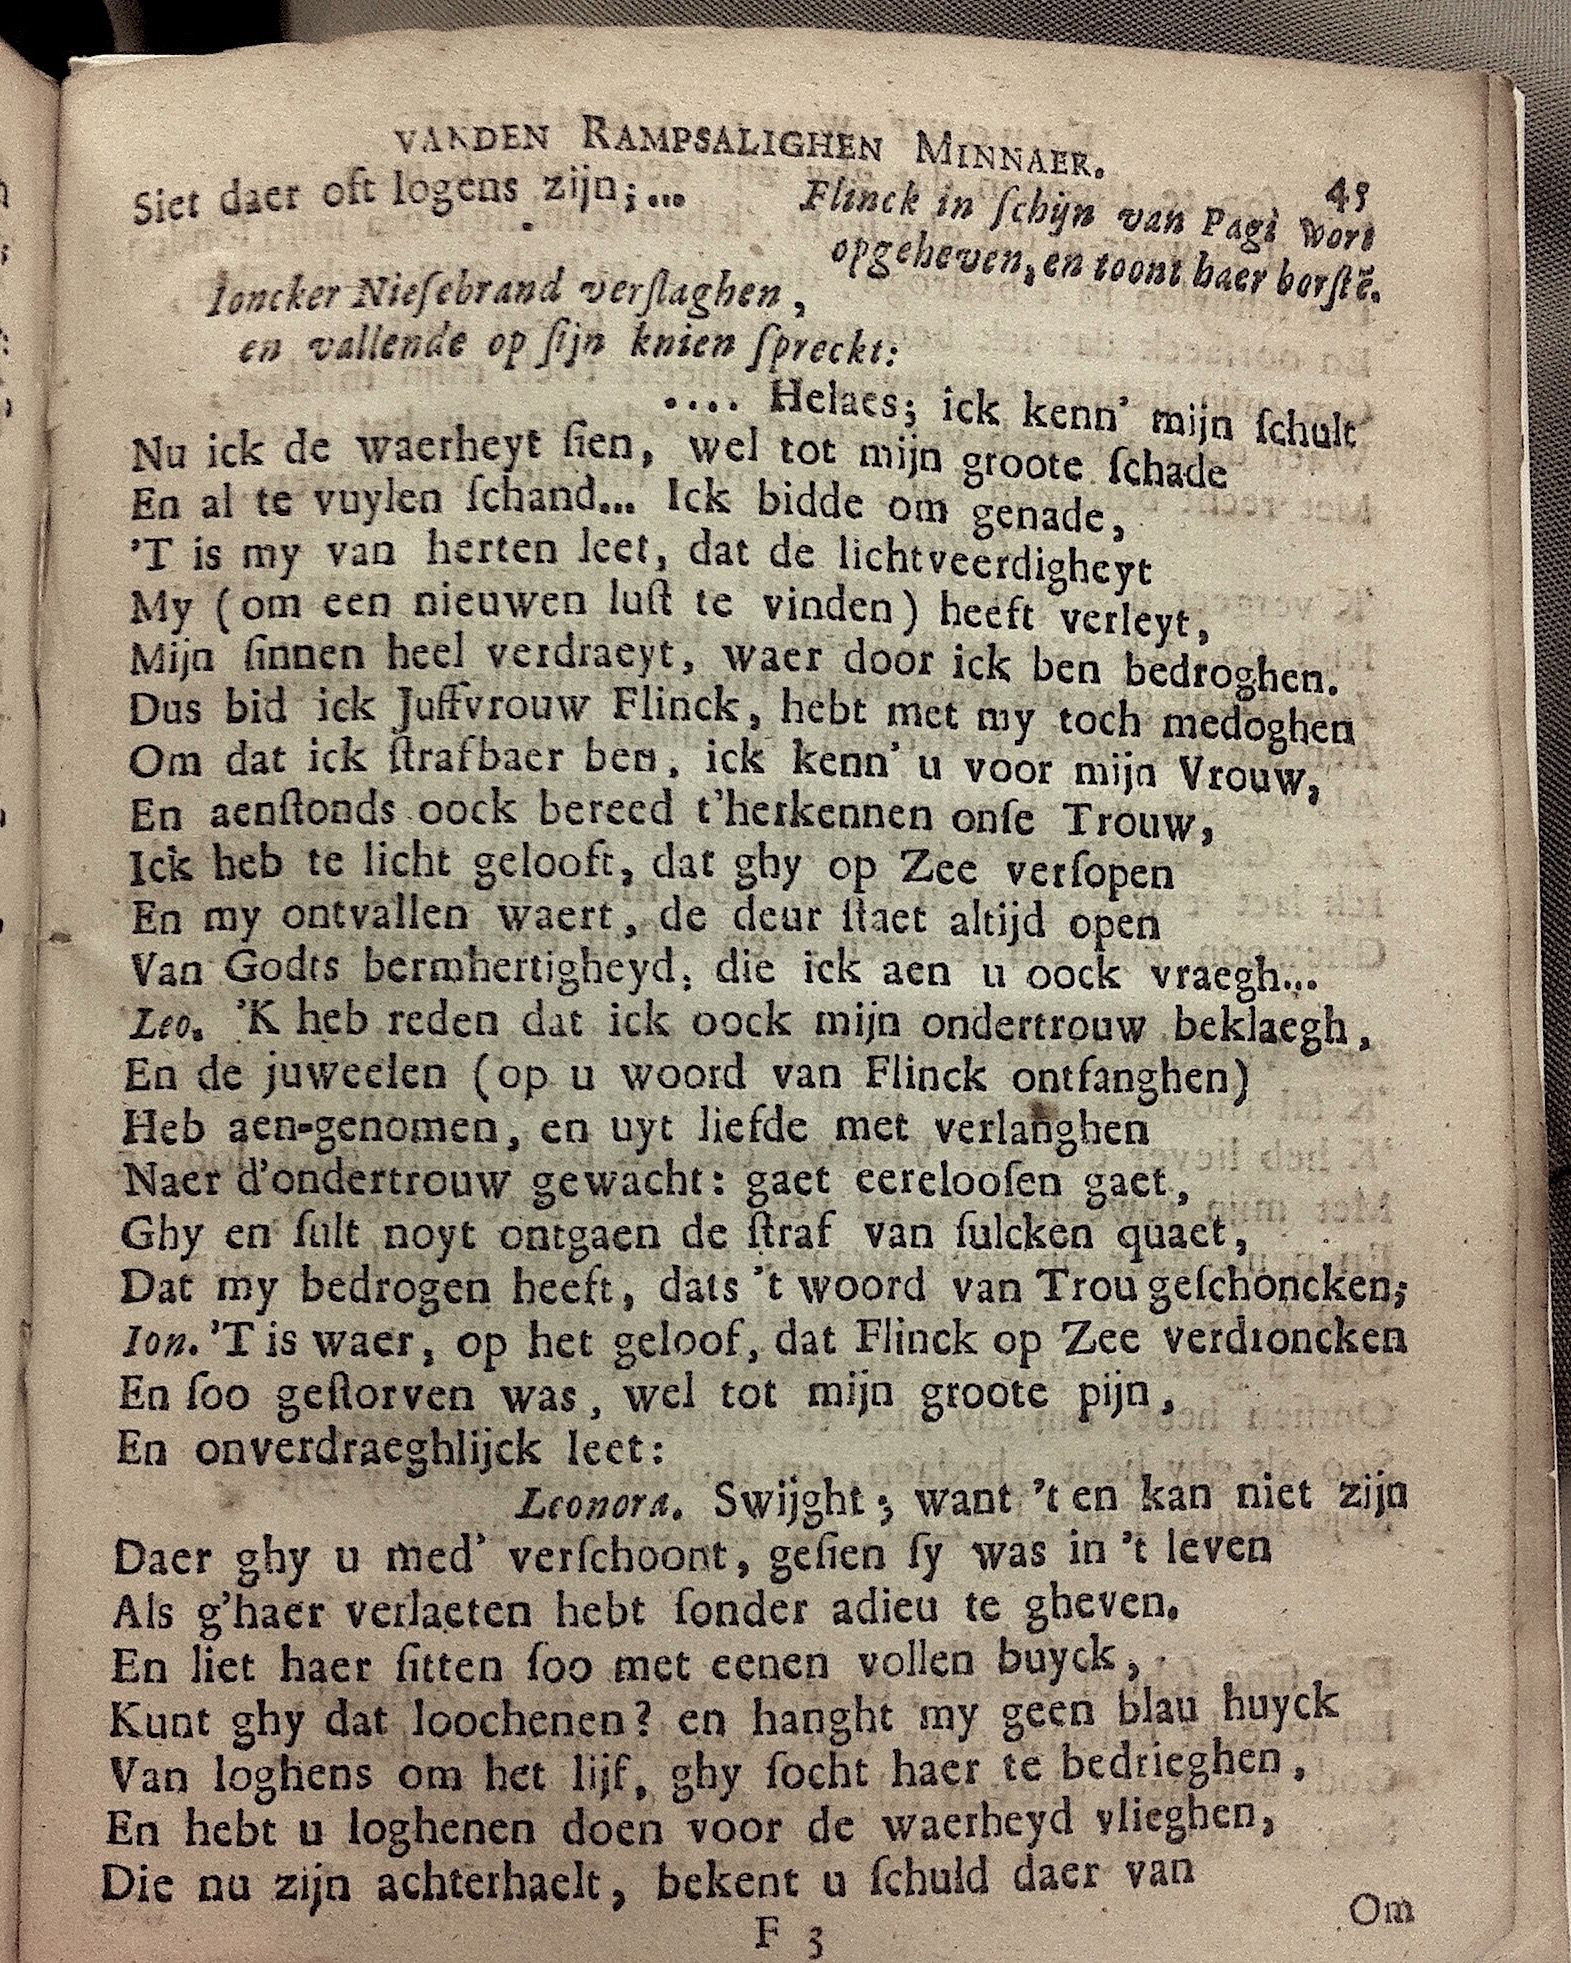 VANDEN RAMPSALIGHEN MINNAER. 45
Siet daer oft logens zijn;...
Flinck in ſchijn van Pagi wort
opgeheven, en toont haer borſtē.
Ioncker Nieſebrand verſlaghen,
en vallende op ſijn knien ſpreckt:
.... Helaes; ick kenn' mijn ſchult
Nu ick de waerheyt ſien, wel tot mijn groote ſchade
En al te vuylen ſchand... Ick bidde om genade,
'T is my van herten leet, dat de lichtveerdigheyt
My (om een nieuwen luſt te vinden) heeft verleyt,
Mijn ſinnen heel verdraeyt, waer door ick ben bedroghen.
Dus bid ick Juffvrouw Flinck, hebt met my toch medoghen
Om dat ick ſtrafbaer ben, ick kenn' u voor mijn Vrouw,
En aenſtonds oock bereed t'herkennen onſe Trouw,
Ick heb te licht gelooft, dat ghy op Zee verſopen
En my ontvallen waert, de deur ſtaet altijd open
Van Godts bermhertigheyd, die ick aen u oock vraegh...
Leo. 'K heb reden dat ick oock mijn ondertrouw beklaegh,
En de juweelen (op u woord van Flinck ontfanghen)
Heb aen-genomen, en uyt liefde met verlanghen
Naer d'ondertrouw gewacht: gaet eerelooſen gaet,
Ghy en ſult noyt ontgaen de ſtraf van ſulcken quaet,
Dat my bedrogen heeft, dats 't woord van Trou geſchoncken;
Ion. 'T is waer, op het geloof, dat Flinck op Zee verdroncken
En ſoo geſtorven was, wel tot mijn groote pijn,
En onverdraeghlijck leet:
Leonora. Swijght; want 't en kan niet zijn
Daer ghy u med' verſchoont, geſien ſy was in 't leven
Als g'haer verlaeten hebt ſonder adieu te gheven.
En liet haer ſitten ſoo met eenen vollen buyck,
Kunt ghy dat loochenen? en hanght my geen blau huyck
Van loghens om het lijf, ghy ſocht haer te bedrieghen,
En hebt u loghenen doen voor de waerheyd vlieghen,
Die nu zijn achterhaelt, bekent u ſchuld daer van
F 3
Om